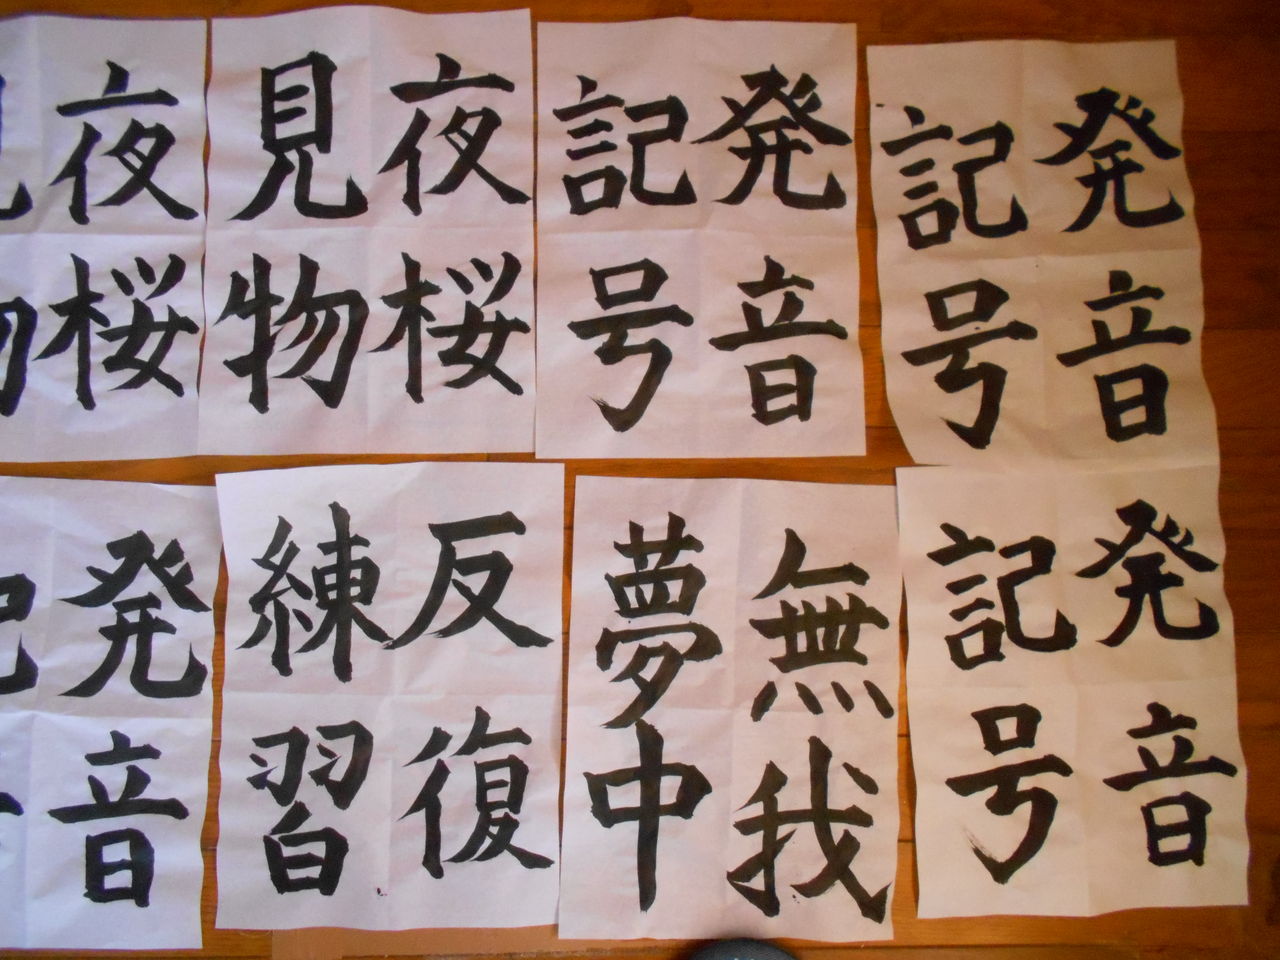 発音
記号
発音
記号
夜桜
見物
夜桜
発音
記号
無我
夢中
反復
練習
発音